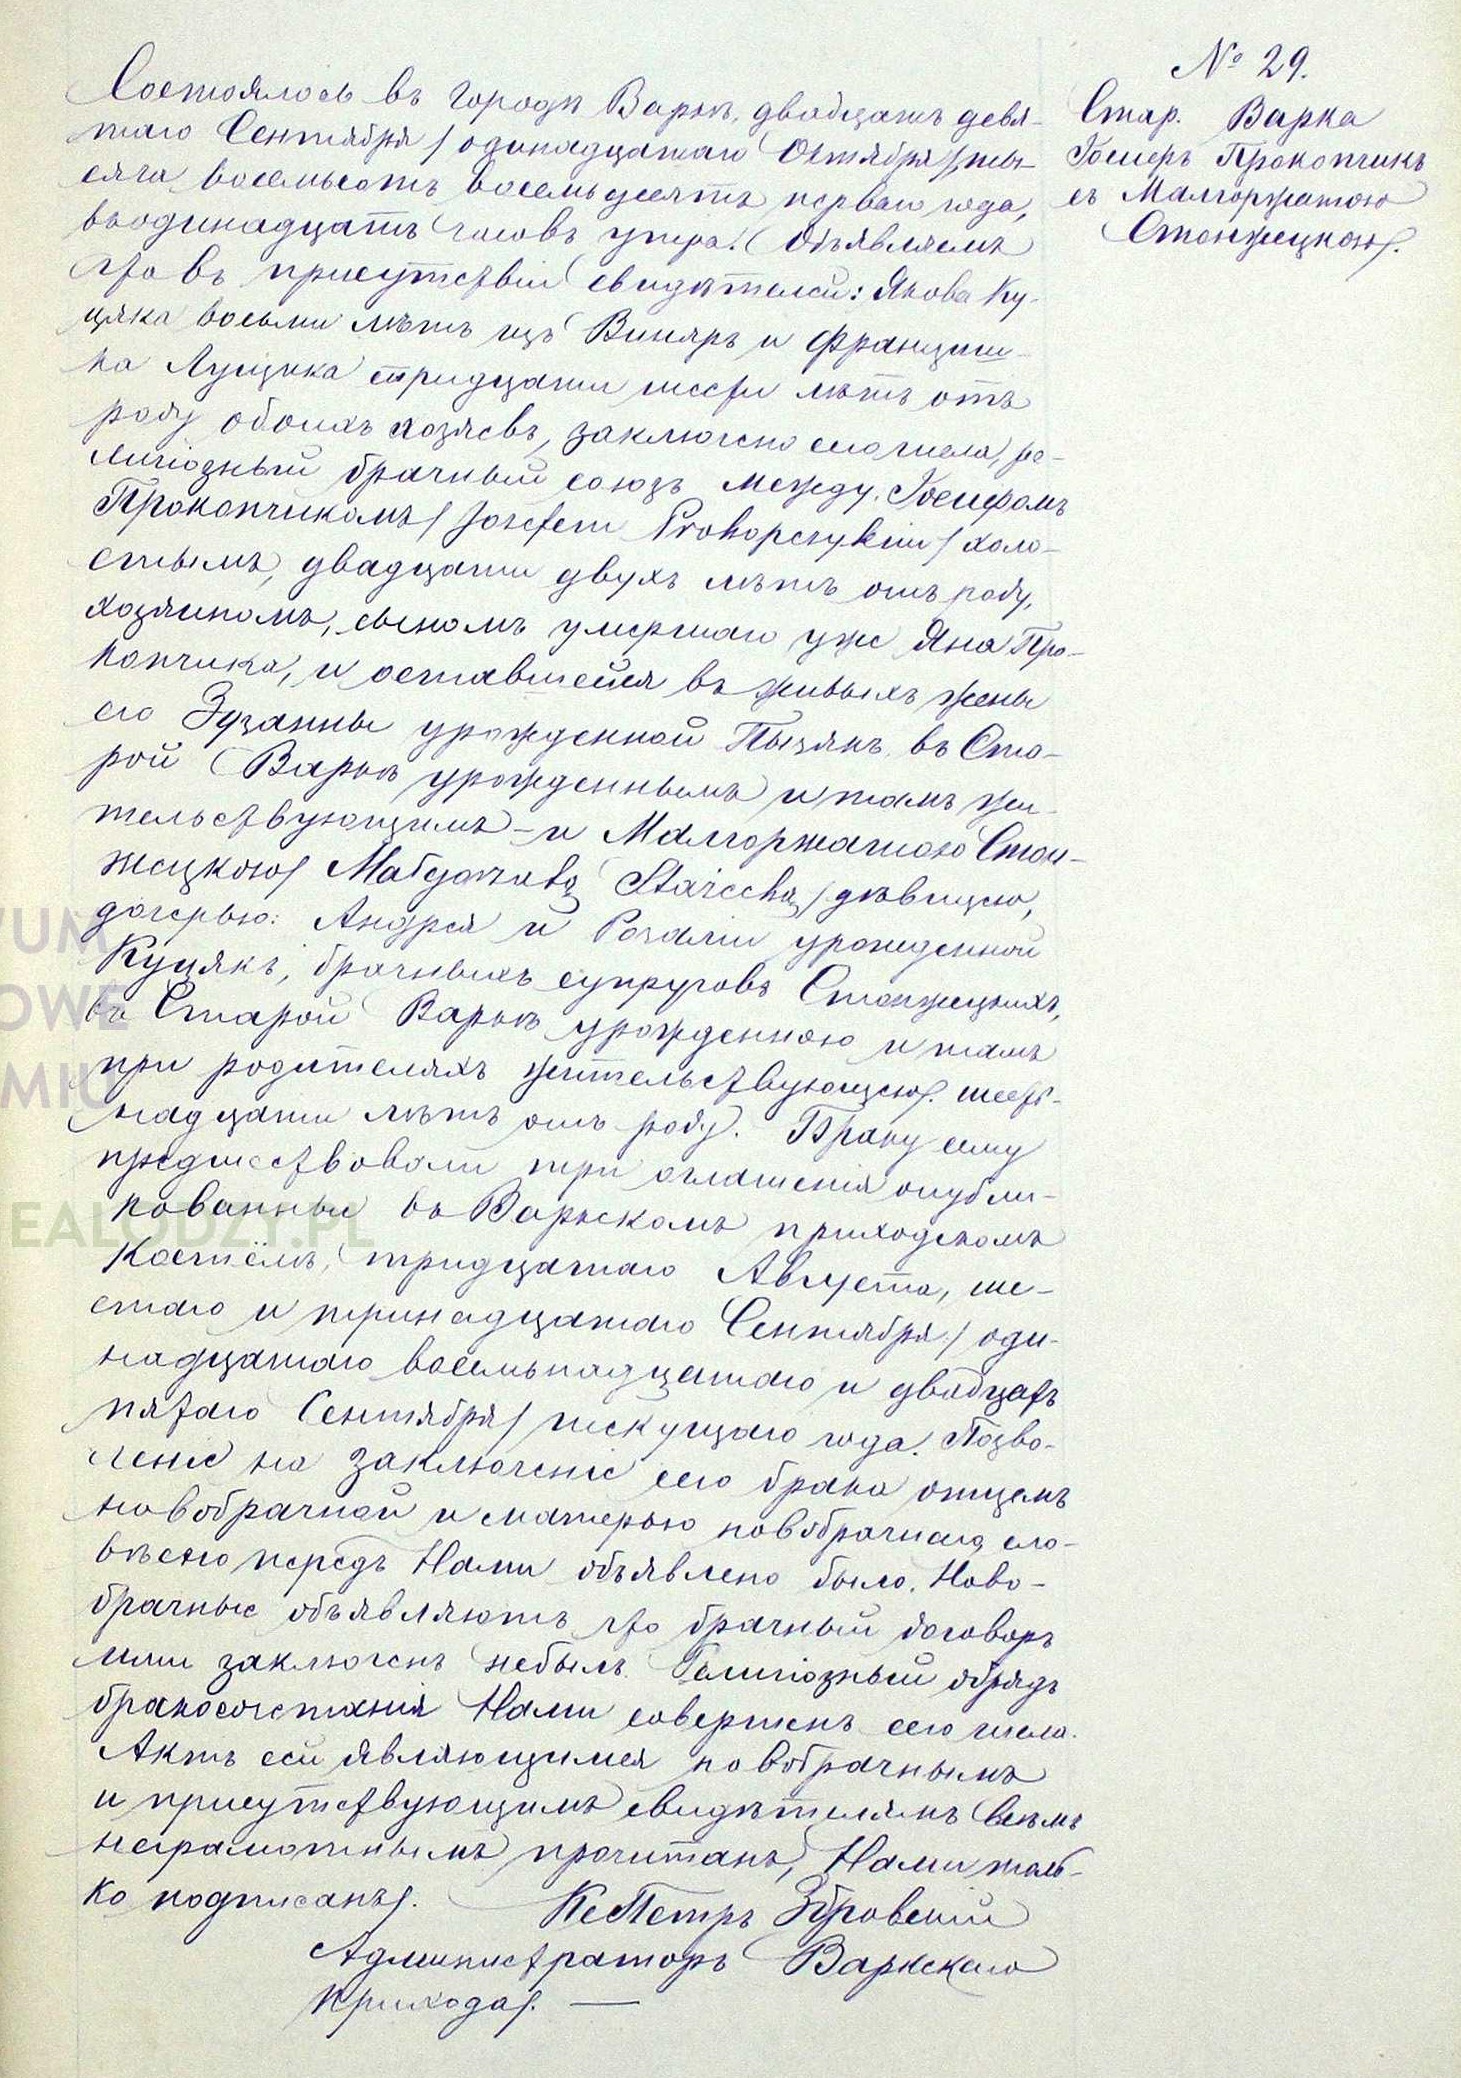 № 29.
Стар. Варка
Іосифъ Прокопчикъ
съ Малгоржатою
Станжецкою.
Состоялось въ городѣ Варкѣ, двадцать девя-
таго Сентября / одинадцатаго Октября / ты-
сяча восемьсотъ восемьдесятъ перваго года,
въ одинадцать часовъ утра. Объявляемъ
что въ присутствіи свидѣтелей: Якова Ку-
цяка восьми лѣтъ изъ Виняръ и Франциш-
ка тридцати шести лѣтъ отъ
роду обоихъ хозяевъ, заключено сего числа, ре-
лигіозный брачный союзъ между Іосифомъ
Прокопчикомъ / Józefem Prokopczykiem / холо-
стымъ, двадцати двухъ лѣтъ отъ роду,
хозяиномъ, сыномъ умершаго уже Яна Про-
копчика, и оставшейся въ живыхъ жены
его Зузанны урожденной Пызякъ, въ Ста-
рой Варкѣ урожденнымъ и тамъ жи-
тельствующимъ – и Малгоржатою Стан-
жецкою / Małgorzatą / дѣвицею,
дочерью: Андрея и Розаліи урожденной
Куцякъ, брачныхъ супруговъ Станжецкихъ,
въ Старой Варкѣ урожденною и тамъ
при родителяхъ жительствующею. шест-
надцати лѣтъ отъ роду. Браку сему
предшествовали три оглашенія опубли-
кованныя въ Варкскомъ приходскомъ
Костёлѣ, тридцатаго Августа, ше-
стаго и тринадцатаго Сентября / оди-
надцатаго восемьнадцатаго и двадцать
пятаго Сентября / текущаго года. Позво-
леніе на заключеніе сего брака отцемъ
новобрачной и матерью новобрачнаго, сло-
весно передъ Нами объявлено было. Ново-
брачные объявляютъ что брачный договоръ
ими заключенъ небылъ. Религіозный обрядъ
бракосочетанія Нами совершенъ сего числа.
Актъ сей являющимся новобрачнымъ
и присутствующимъ свидѣтелямъ всѣмъ
неграмотнымъ прочитанъ, Нами толь-
ко подписанъ.
Кс Петръ Збровскій
Администраторъ Варкскаго
прихода. —